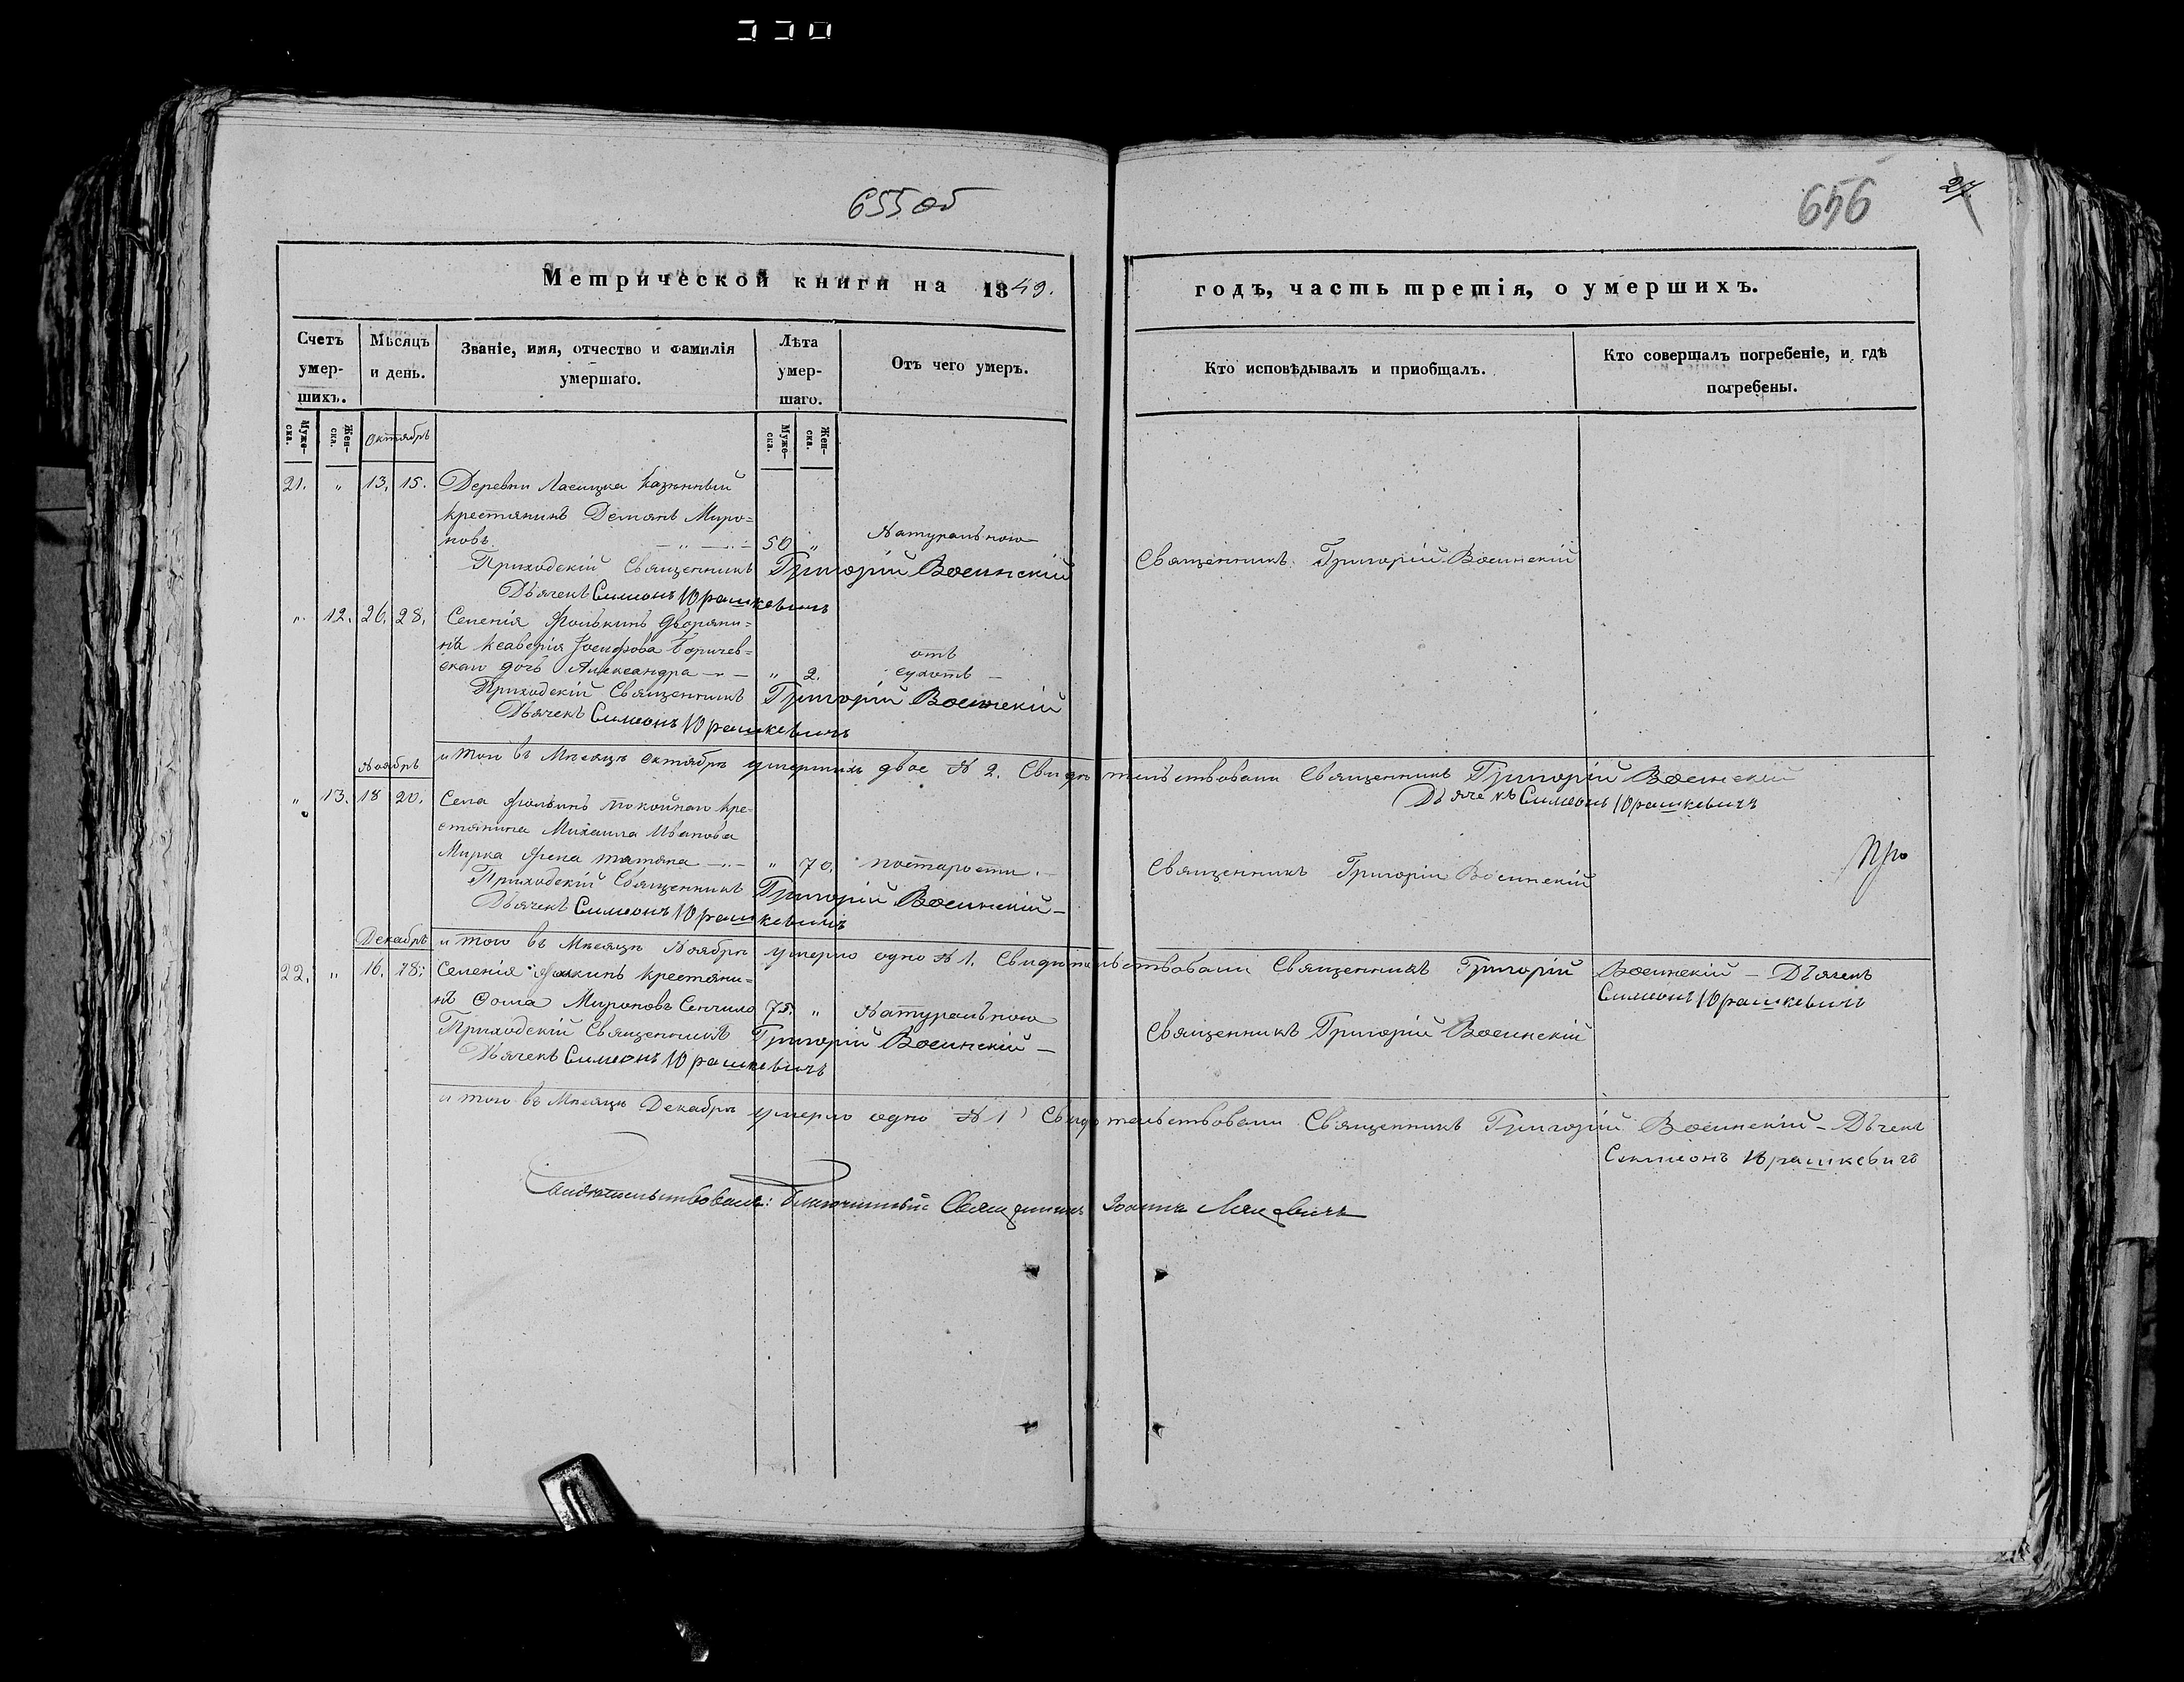 655 об
656
27
Метрической книги на 1849.
годъ, часть третія, о умершихъ.
Счетъ умер-шихъ.
Мѣсяцъ и день.
Званіе, имя, отчество и фамилія умершаго.
Лѣта умер-шаго.
Отъ чего умеръ.
Кто исповѣдывалъ и пріобщалъ.
Кто совершалъ погребеніе, и гдѣ погребены.
Муже-ска.
Жен-ска.
Октябрь
Муже-ска.
Жен-ска.
21. " 13. 15. Деревни Ласицка казенный
крестянинъ Демянъ Миро=
новъ 50 " Натуральною
Священникъ Григорій Воеинскій
Приходскій Священникъ Григорій Воеинскій
Дьячекъ Симеонъ Юрашкевичъ
" 12. 26. 28. Селенія дворяни=
нъ Ксаверія Іосифова
дочь Александра " 2. отъ сухотъ
Приходскій Священникъ Григорій Воеинскій
Дьячекъ Симеонъ Юрашкевичъ
Ноябрь
итого въ Мѣсяцѣ Октябрѣ умершихъ двое № 2. Свидѣтельствовали Священникъ Григорій Воеинскій
Дьячекъ Симеонъ Юрашкевичъ
" 13. 18 20. Села покойнаго кре-
стянина Михаила Иванова
Мирка жена татяна " 70. постарости.
Священникъ Григорій Воеинскій
Приходскій Священникъ Григорій Воеинскій
Дьячекъ Симеонъ Юрашкевичъ
Декабрь
итого въ Мѣсяцѣ Ноябрѣ умерло одно № 1. Свидѣтельствовали Священникъ Григорій Воеинскій – Дьячекъ
Симеонъ Юрашкевичъ
22. " 16. 18. Селенія крестяни=
нъ Фома Мироновъ 75. " Натуральною
Священникъ Григорій Воеинскій
Приходскій Священникъ Григорій Воеинскій
Дьячекъ Симеонъ Юрашкевичъ
итого въ Мѣсяцѣ Декабрѣ умерло одно № 1 Свидѣтельствовали Священникъ Григорій Воеинскій – Дьчекъ
Симмонъ Юрашкевичъ
Свидѣтельствовалъ: Благочинный Священникъ Іоаннъ